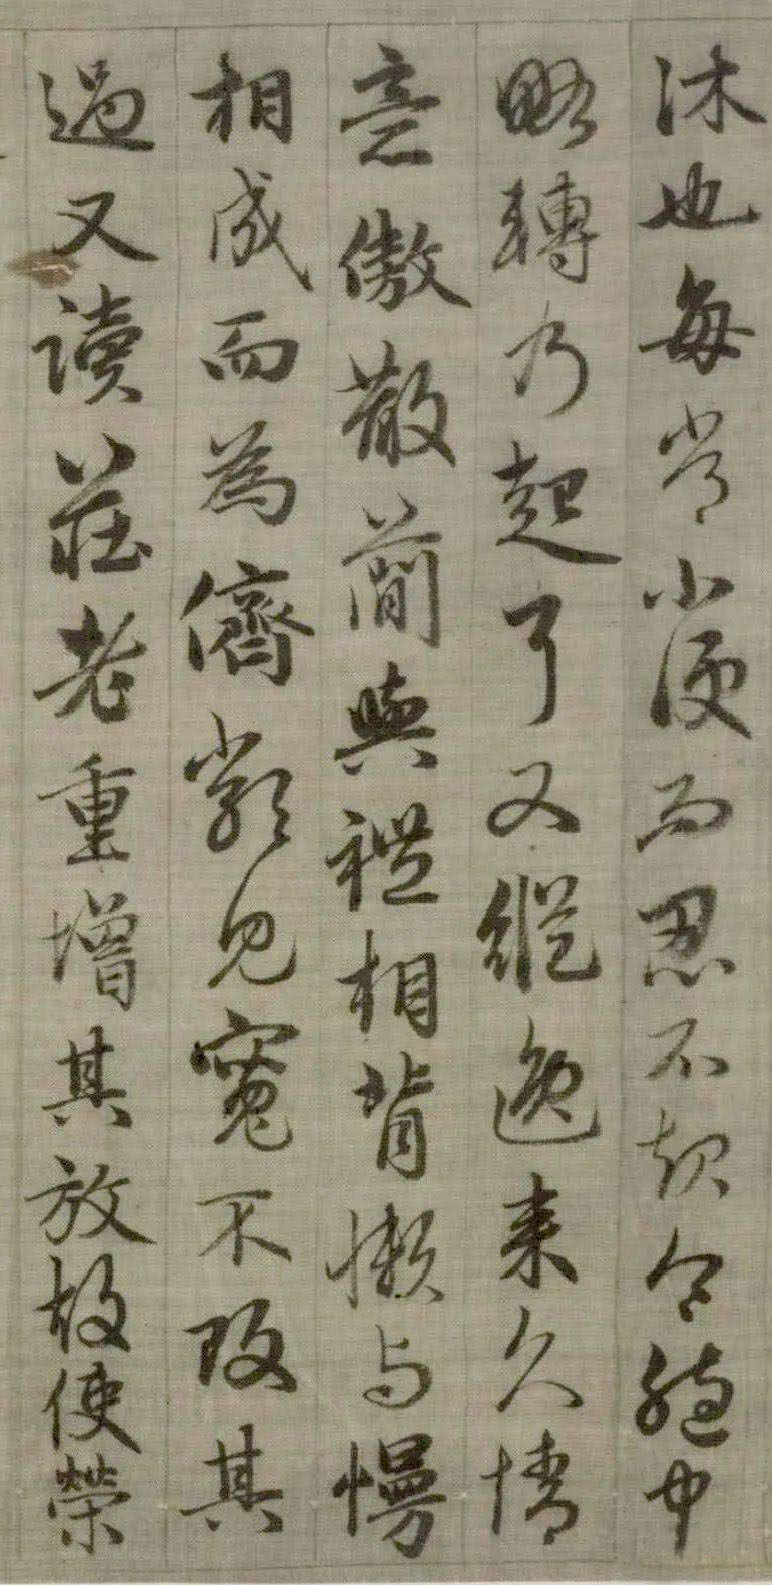 沐也每常小便而忍不起令胞中
略轉乃起耳又縱逸来久情
意傲散簡與禮相背懶与慢
相成而為儕類見寬不攻其
過又讀莊老重增其放故使榮